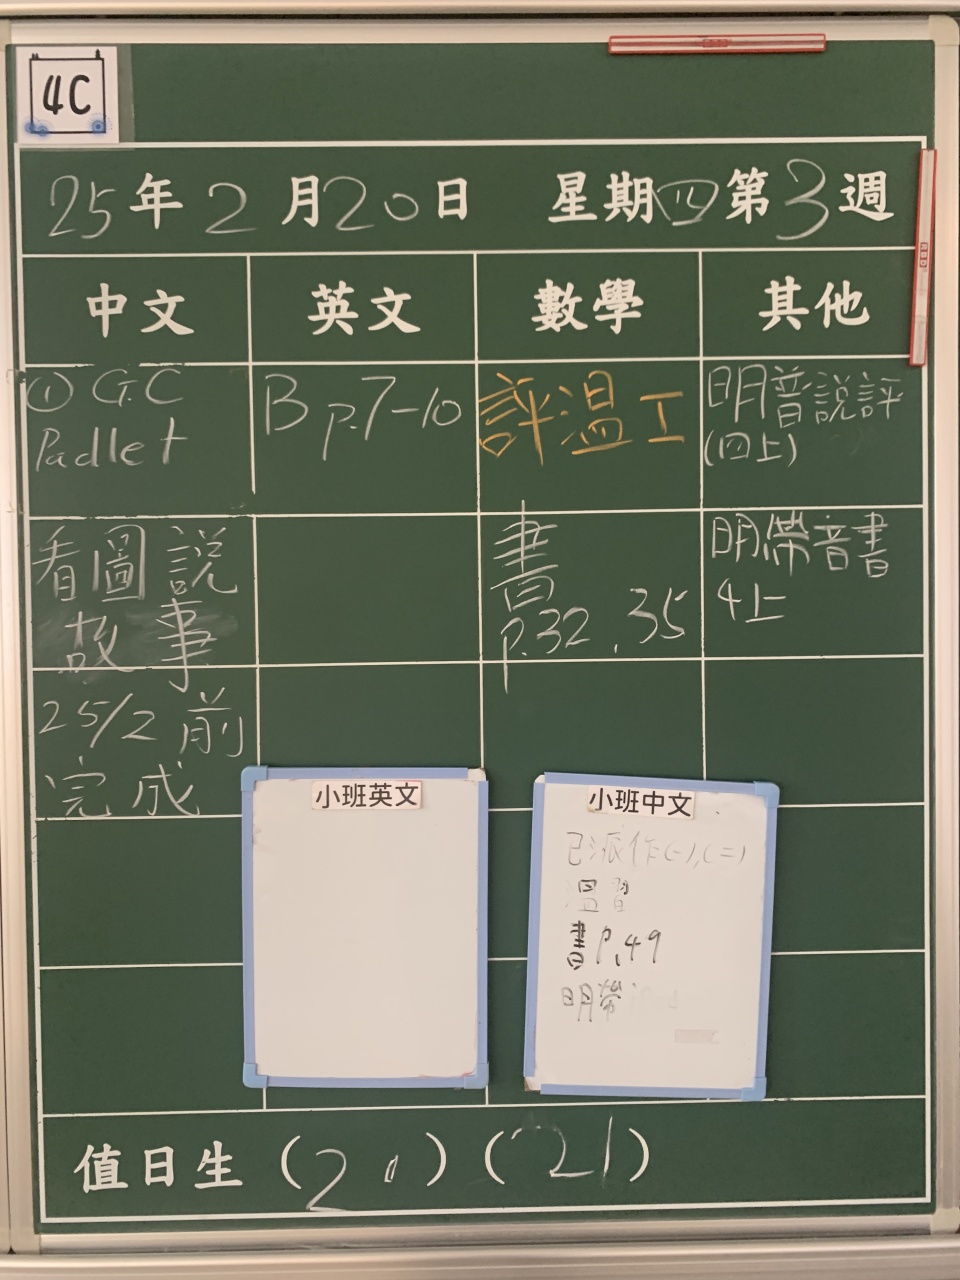 4C
25年2月20日 星期四第3週
中文 英文 數學 其他
① G.C
Padlet
看圖說
故事
25/2前
完成
B p.7-10
評溫工
書
p.32, 35
明普說評
(四上)
明帶音書
4上
小班英文
小班中文
已派作(一),(二)
溫習
書P.49
明帶
值日生 (20) (21)